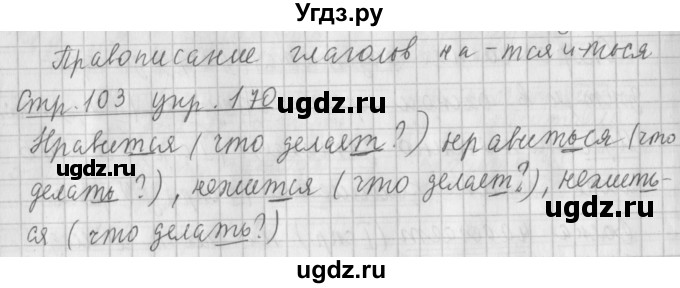 Угдз.ру
Правописание глаголов на -тся и -ться
Стр. 103 упр. 170
Нравится (что делает?) нравиться (что
делать?), нежится (что делает?), нежить-
ся (что делать?)
uwdz.ru
uwdz.ru
uwdz.ru
uwdz.ru
uwdz.ru
uwdz.ru